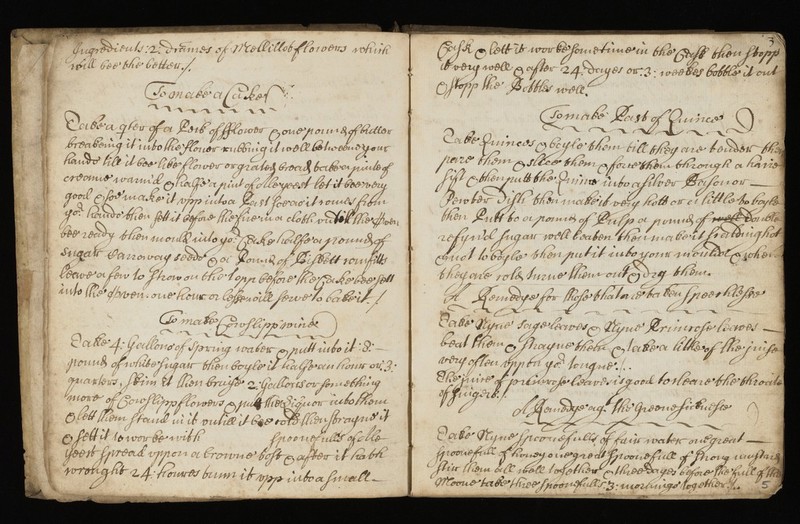 Ingredients: 2: drames of Mellillot flowers which
will bee the better /.
To make a Cake
Take a qter of a Peck of fflower & one pound of butter
breaking it into the flower rubbing it well betweene your
hands till it bee like flower or grated bread, take a pinte of
creame warm'd & halfe a pint of alleyeest let it bee very
good & soe make it upp into a Past soe as it comes from
yor hands then sett it before the fire in a cloth untill the Oven
bee ready then mould into yor Cake halfe a pound of
Sugar Carraway seeds & a Pound of Biskett comfitts
leave a few to strow on the topp before the Cake bee sett
into the Oven. one hour or lesse will serve to bake it /
To make Cowslipp wine
Take 4: Gallons of spring water & putt into it :8: -
pound of white sugar then boyle it halfe an hour or 3:
quarters, skim it then bruise 2: Gallons or something
more of Cowslipp flowers & putt the liquor into them
& lett them stand in it untill it bee cold then strayne it
& sett it to worke with spoonefulls of Ale
yeest spread uppon a browne tost & after it hath
wrought 24: houres tunn it upp into a small -
3
Cask & lett it worke sometime in the Cask then stopp
it very well & after 24: dayes or :3: weekes bottle it out
& stopp the Bottles well.
To make Past of Quince
Take Quinces & boyle them till they are tender then
pare them & slice them & force them through a haire
sift & then putt the Quince into a silver Bason or -
Pewter Dish then make it very hott or a little to boyle
then Putt to a pound of Pulp a pound of well double
refyn'd sugar well beaten then make it scalding hot
& not to boyle then put it into your moulds & when
they are cold turne them out & dry them.
A Remedye for those that are taken speechlesse
Take Nyne sage leaves & Nyne Primrose leaves -
beat them & strayne them & take a little of the juise
very often uppon yor tongue. /..
The juice of primrose leaves is good to cleare the throate
of singers /.
A Remedye agt the Greene sicknesse
Take Nyne spoonefulls of fair water one great -
spoonefull of honey one great spoonefull of strong mustard
stirr them all well together & three dayes before the full of the
Moone take three spoonefulls 3: mornings together /..
5